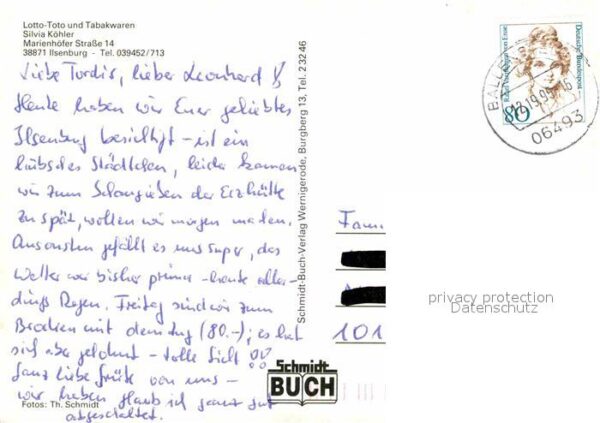 Lotto-Toto und Tabakwaren
Silvia Köhler
Marienhöfer Straße 14
38871 Ilsenburg - Tel. 039452/713
Liebe Tordis, lieber Leonhard
Heute haben wir Euer geliebtes
Ilsenburg besichtigt - ist ein
hübsches Städtchen, leider kamen
wir zum Schaugießen der Erzhütte
zu spät, wollen wir morgen machen.
Ansonsten gefällt es uns super, das
Wetter war bisher prima - heute aller-
dings Regen. Freitag sind wir zum
Brocken mit dem Zug (80.-); es hat
sich aber gelohnt - tolle Sicht !!
Ganz liebe Grüße von uns -
wir haben glaub ich ganz gut
abgeschaltet.
Fotos: Th. Schmidt
Schmidt-Buch-Verlag Wernigerode, Burgberg 13, Tel. 2 32 46
Schmidt
BUCH
Deutsche Bundespost
80
06493
Fami
101
privacy protection
Datenschutz